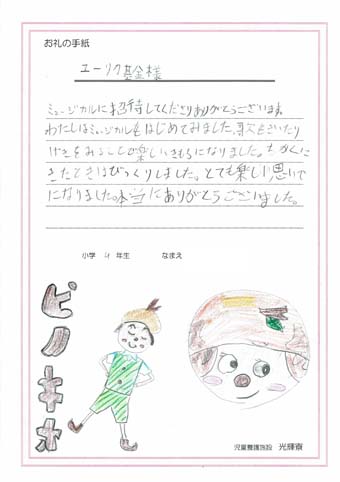 お礼の手紙
ユーリク基金様
ミュージカルに招待してくださりありがとうございます。
わたしはミュージカルをはじめてみました。歌をきいたり
げきをみるして楽しいきもちになりました。ちかくに
きたときはびっくりしました。とても楽しい思いで
になりました。本当にありがとうございました。
小学 4 年生 なまえ
ピノキオ
児童養護施設 光輝寮